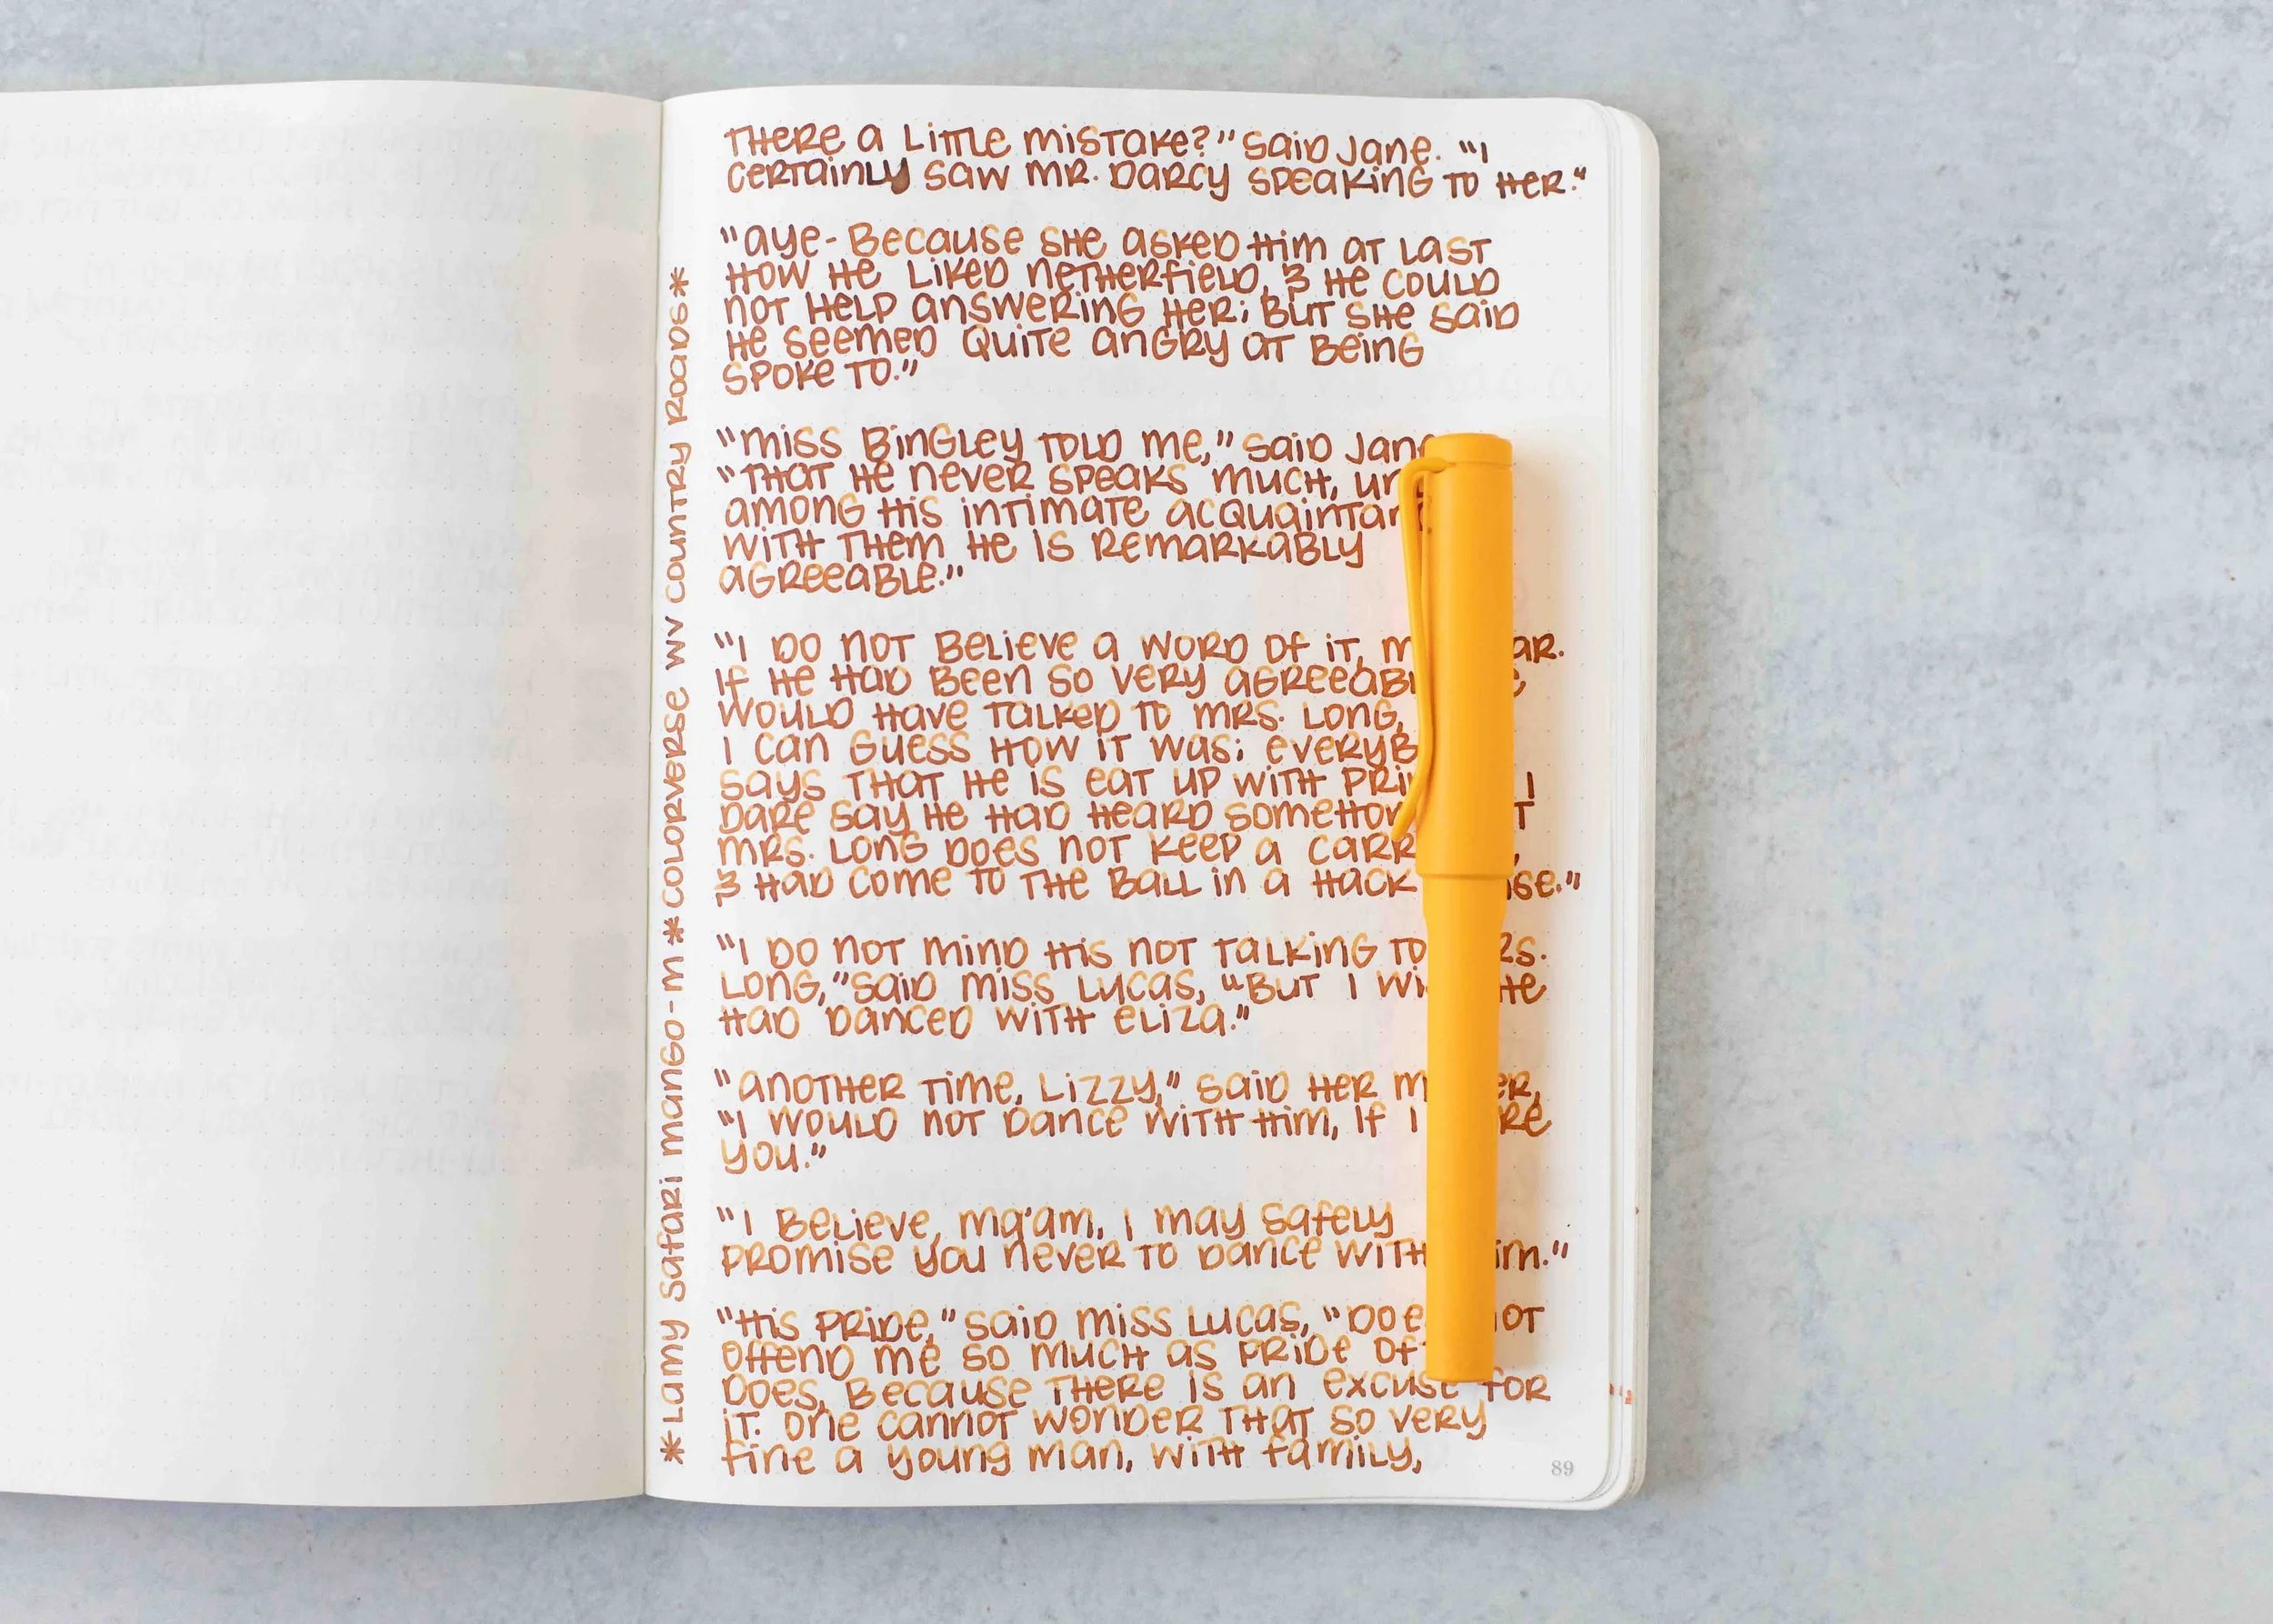 THERE a LITTLE mISTAKE?" SaiD Jane. "I
CERTainLY Saw mR. DaRCY SPEAKinG TO HER."
"aye- BECAUSE SHE ASKED Him AT LAST
HOW HE LIKED nETHERfiELD, & HE COULD
NOT HELP answERinG HER; BUT SHE SaiD
HE SEEMED QUITE anGRY aT BEinG
SPOKE TO."
"miss BinGLEY TOLD me," SaiD
"THAT HE nEVER SPEAKS mUCH,
amonG His inTimaTE
WITH THEm HE IS REmaRKABLY
aGREEaBLE."
"I DO NOT BELIEVE a WORD Of iT,
If HE HaD BEEn SO VERY
WOULD HaVE TaLKED TO mRS. LONG,
I Can GUESS HOW iT Was;
Says THAT HE IS EaT UP WiTH I
DaRE Say HE HaD HEARD
mRS. LONG DOES NOT KEEP a
& HaD COmE TO THE BaLL in a HaCK
"I DO NOT minD His NOT TaLKinG TO
LONG," SaiD miss LUCAS, "BUT I
HaD DanCED WITH ELiZa."
"anOTHER TimE, LiZZY," SaiD HER
"I WOULD NOT DanCE WITH Him, If I
YOU."
"I BELiEVE, ma'am, I may SafELY
PROmiSE YOU nEVER TO DanCE WITH
"His PRiDE," SaiD miss LUCAS,
OffEnD mE SO mUCH as PRiDE Of
DOES, BECAUSE THERE IS an EXCUSE fOR
iT. OnE CannOT WONDER THAT SO VERY
finE a YOUnG man, WITH famiLY,
89
*Lamy Safari manGO-m*COLORVERSE WV COUnTRY ROaDS*